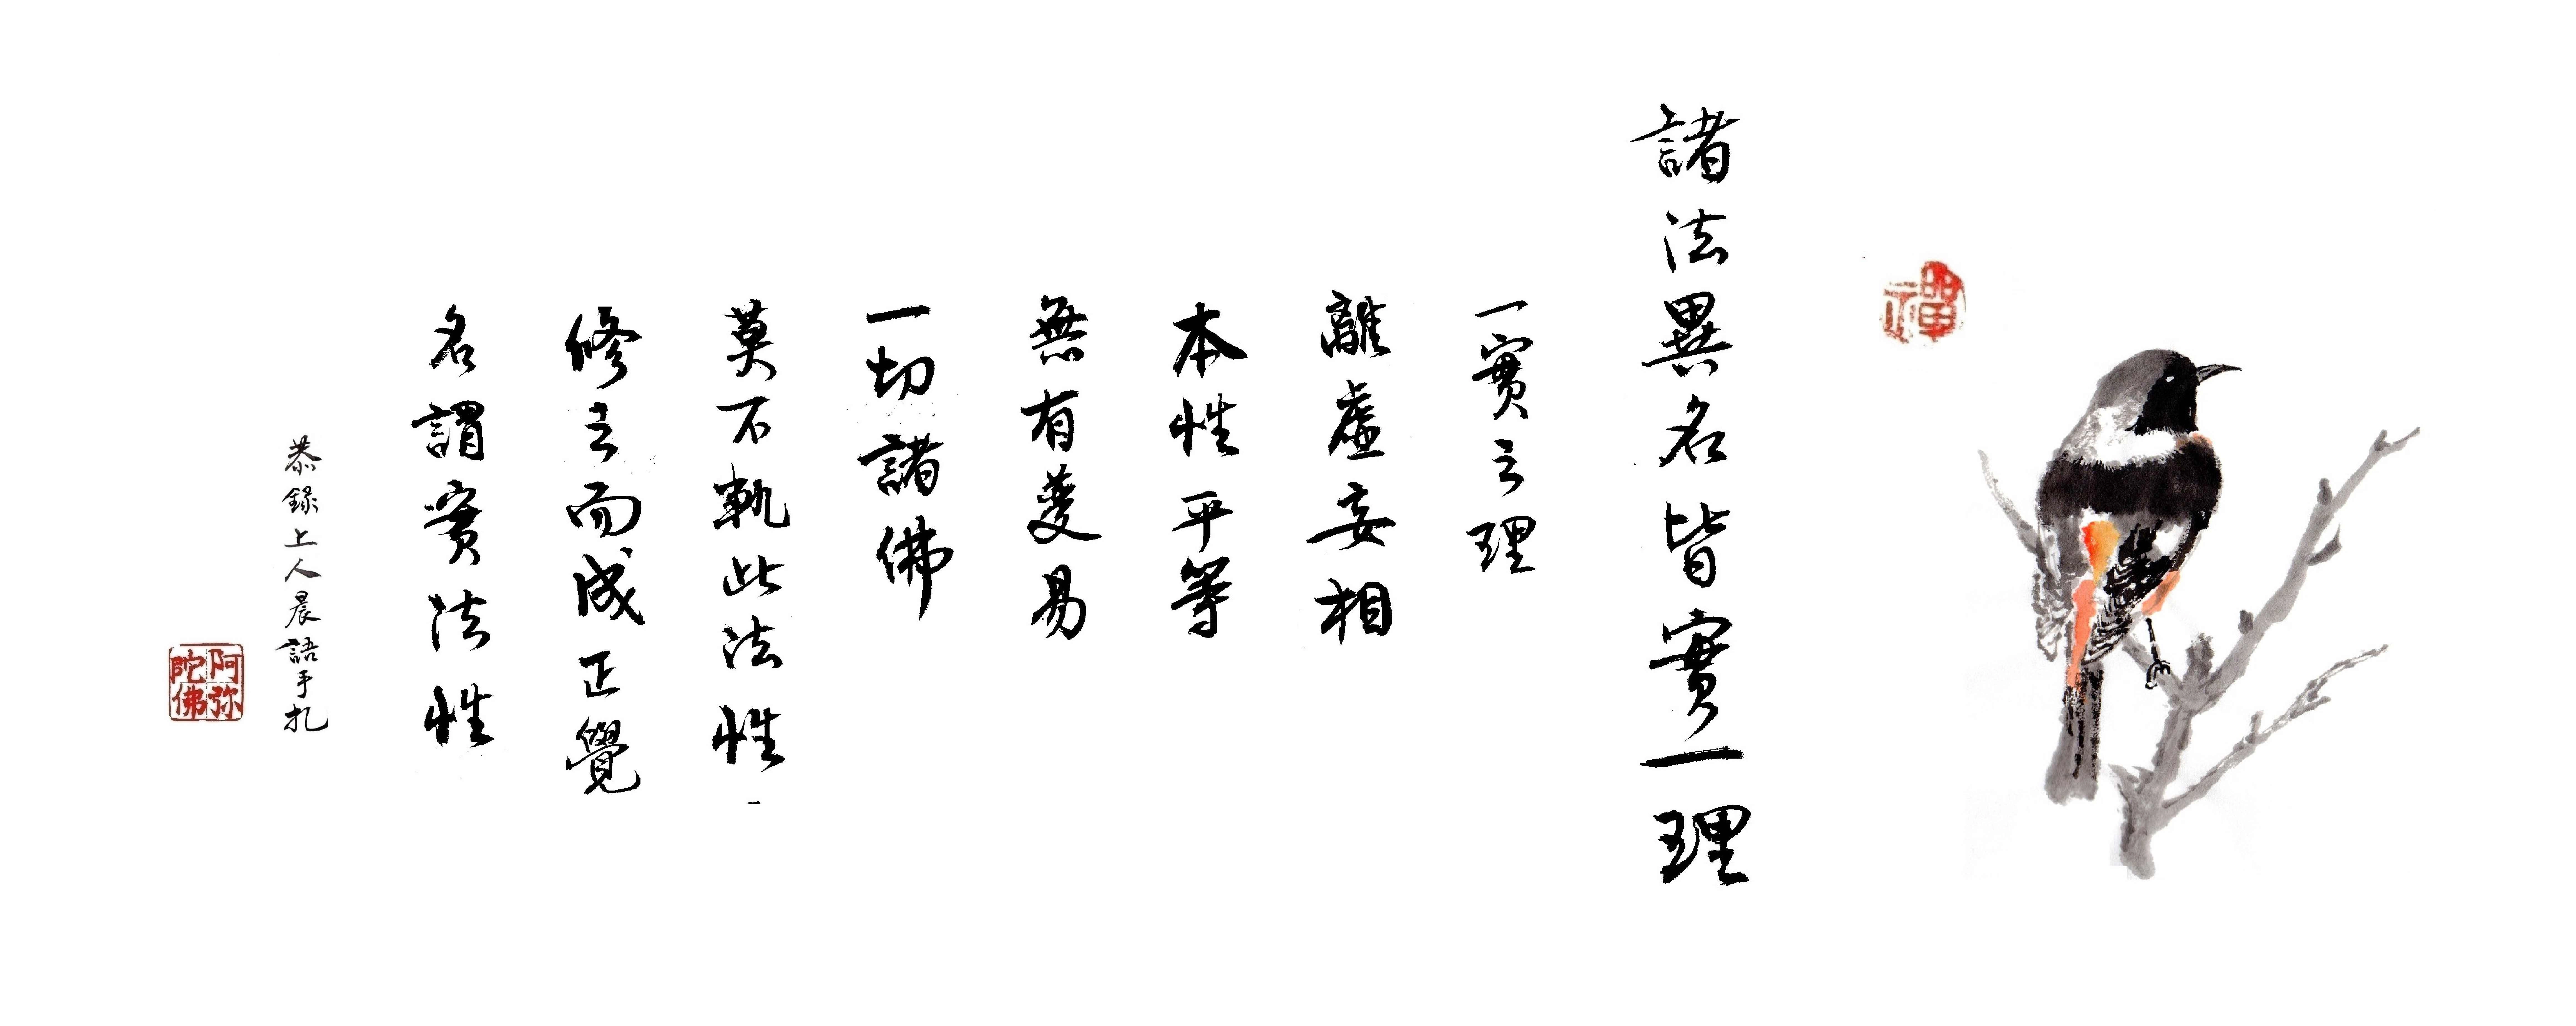 禪
諸法異名皆實一理
一實之理
離虛妄相
本性平等
無有變易
一切諸佛
莫不軌此法性
修之而成正覺
名謂實法性
恭錄上人晨語手扎
阿弥
陀佛